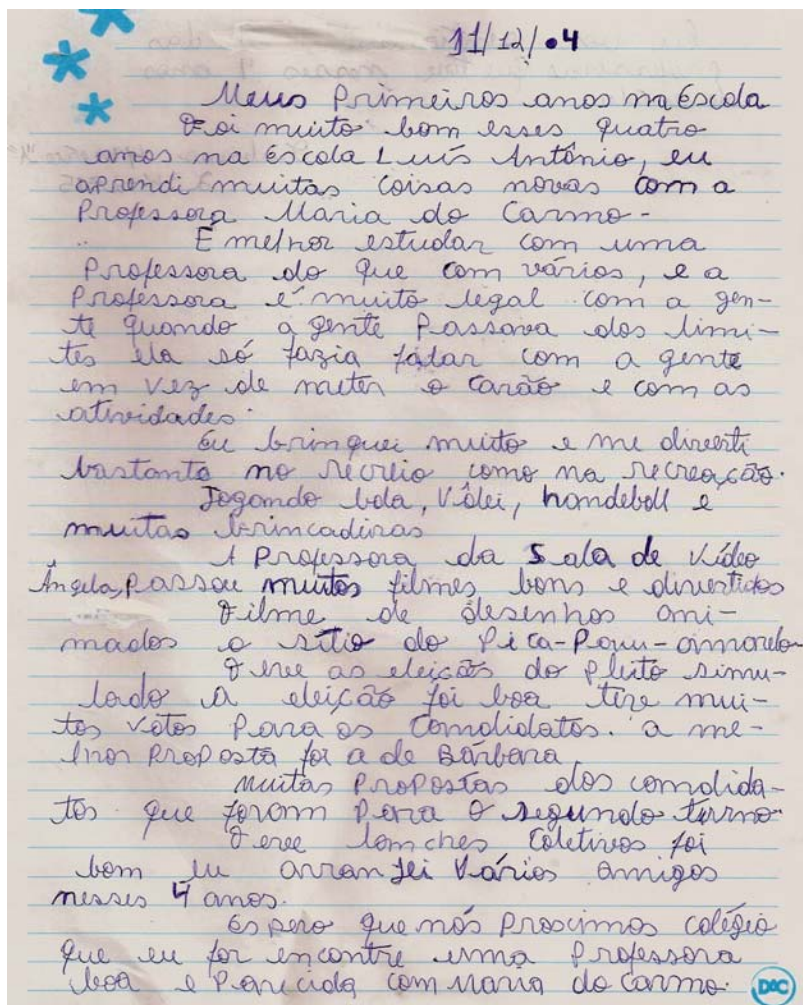 11/12/04
Meus Primeiros anos na Escola
Foi muito bom esses quatro
anos na Escola Luís Antônio, eu
aprendi muitas coisas novas com a
Professora Maria do Carmo.
É melhor estudar com uma
Professora do que com vários, e a
Professora é muito legal com a gen-
te quando a gente Passava dos limi-
tes ela só fazia falar com a gente
em vez de meter o carão e com as
atividades.
Eu brinquei muito e me diverti
bastante no recreio como na recreação.
Jogando bola, Vôlei, handeboll e
muitas brincadiras
A Professora da Sala de Vídeo
Ângela, Passou muitos filmes bons e divertidos
Filme de desenhos ani-
mados o sítio do Pica-Pauu-amarelo
Teve as eleições do Pleito simu-
lado a eleição foi boa tive mui-
tos votos Para os Comdidatos. a me-
lhor Proposta foi a de Bárbara
muitas Propostas dos comdida-
tos que foram Para o segundo turno.
Teve lamches Coletivos foi
bom eu arranjei Vários amigos
nesses 4 anos.
Espero que nós Proscimos colégio
que eu for encontre uma Professora
boa e Parecida com Maria do Carmo.
DAC